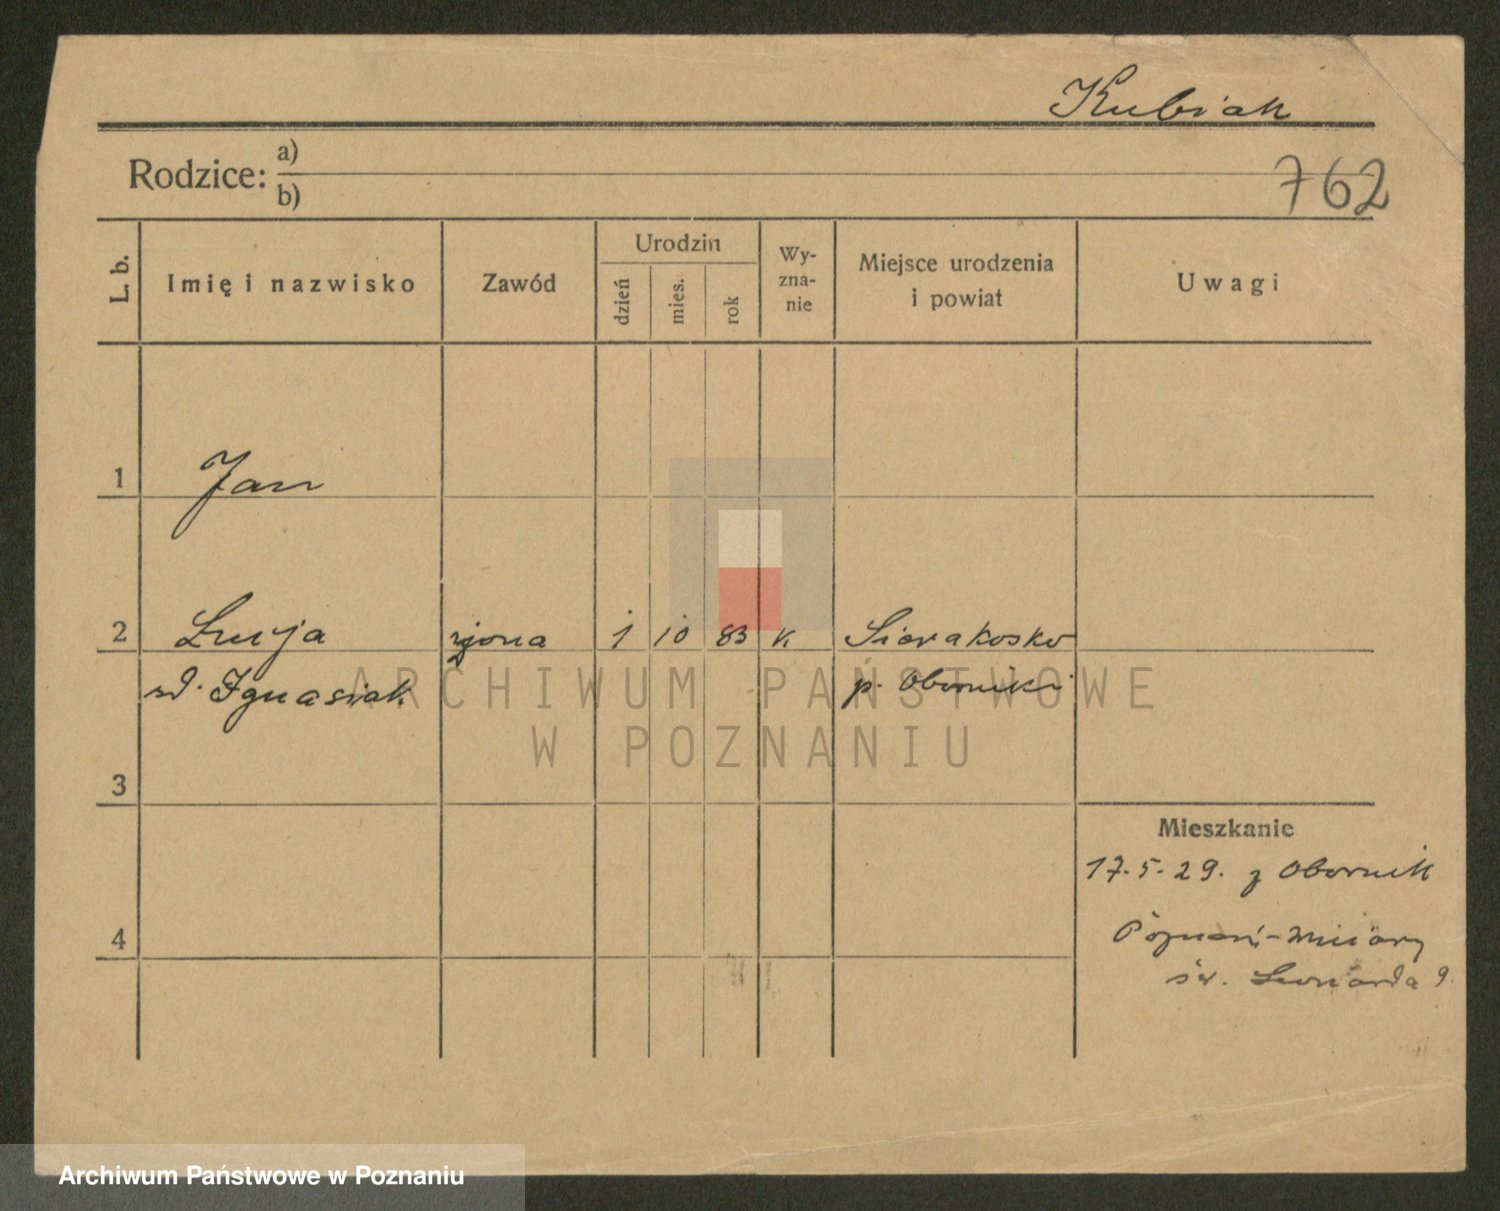 Kubiak
Rodzice: a)
b)
762
L. b.
Imię i nazwisko
Zawód
Urodzin
dzień
mies.
rok
Wy-
zna-
nie
Miejsce urodzenia
i powiat
Uwagi
1 Jan
2 Łucja żona 1 10 83 k. Sierakosko
zd. Ignasiak p. Oborniki
ARCHIWUM PAŃSTWOWE
W POZNANIU
3
Mieszkanie
17.5.29. z Obornik
4
Poznań-Winiary
św. Leonarda 9.
Archiwum Państwowe w Poznaniu